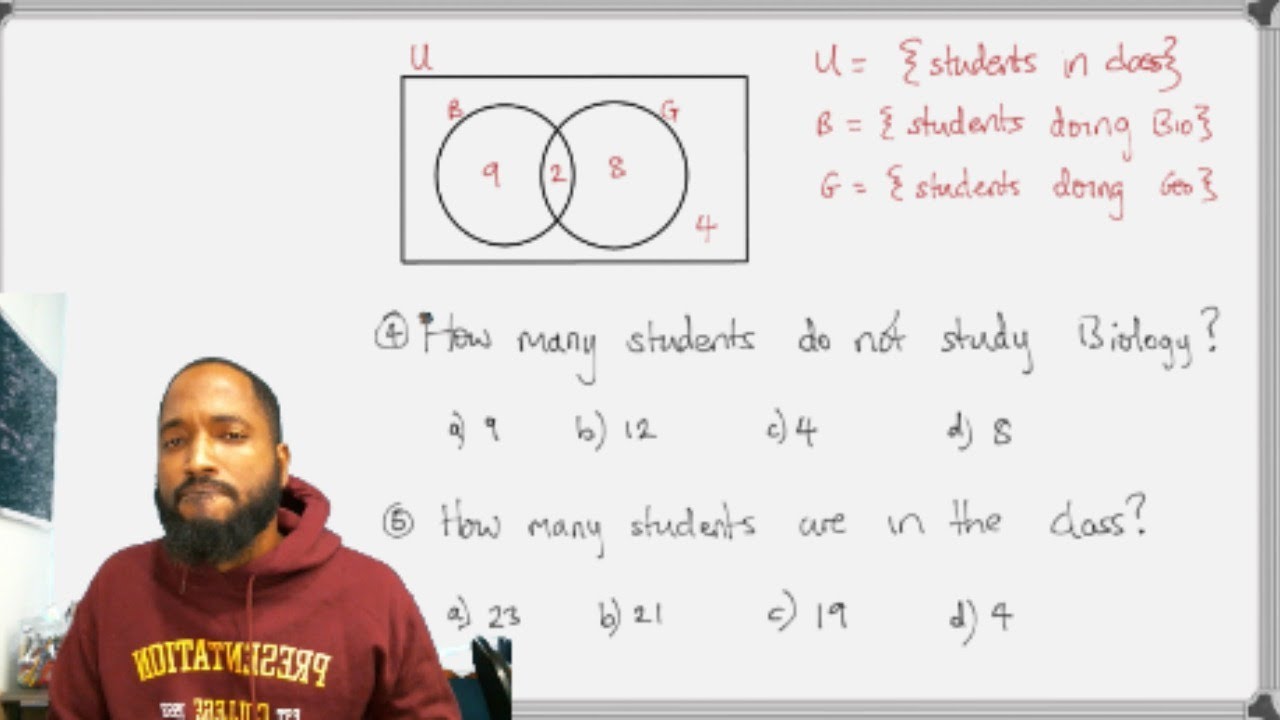 U
U = {students in class}
B
G
B = {students doing Bio}
9 2 8
G = {students doing Geo}
4
④ How many students do not study Biology?
a) 9 b) 12 c) 4 d) 8
⑤ How many students are in the class?
a) 23 b) 21 c) 19 d) 4
PRESENTATION
EST COLLEGE